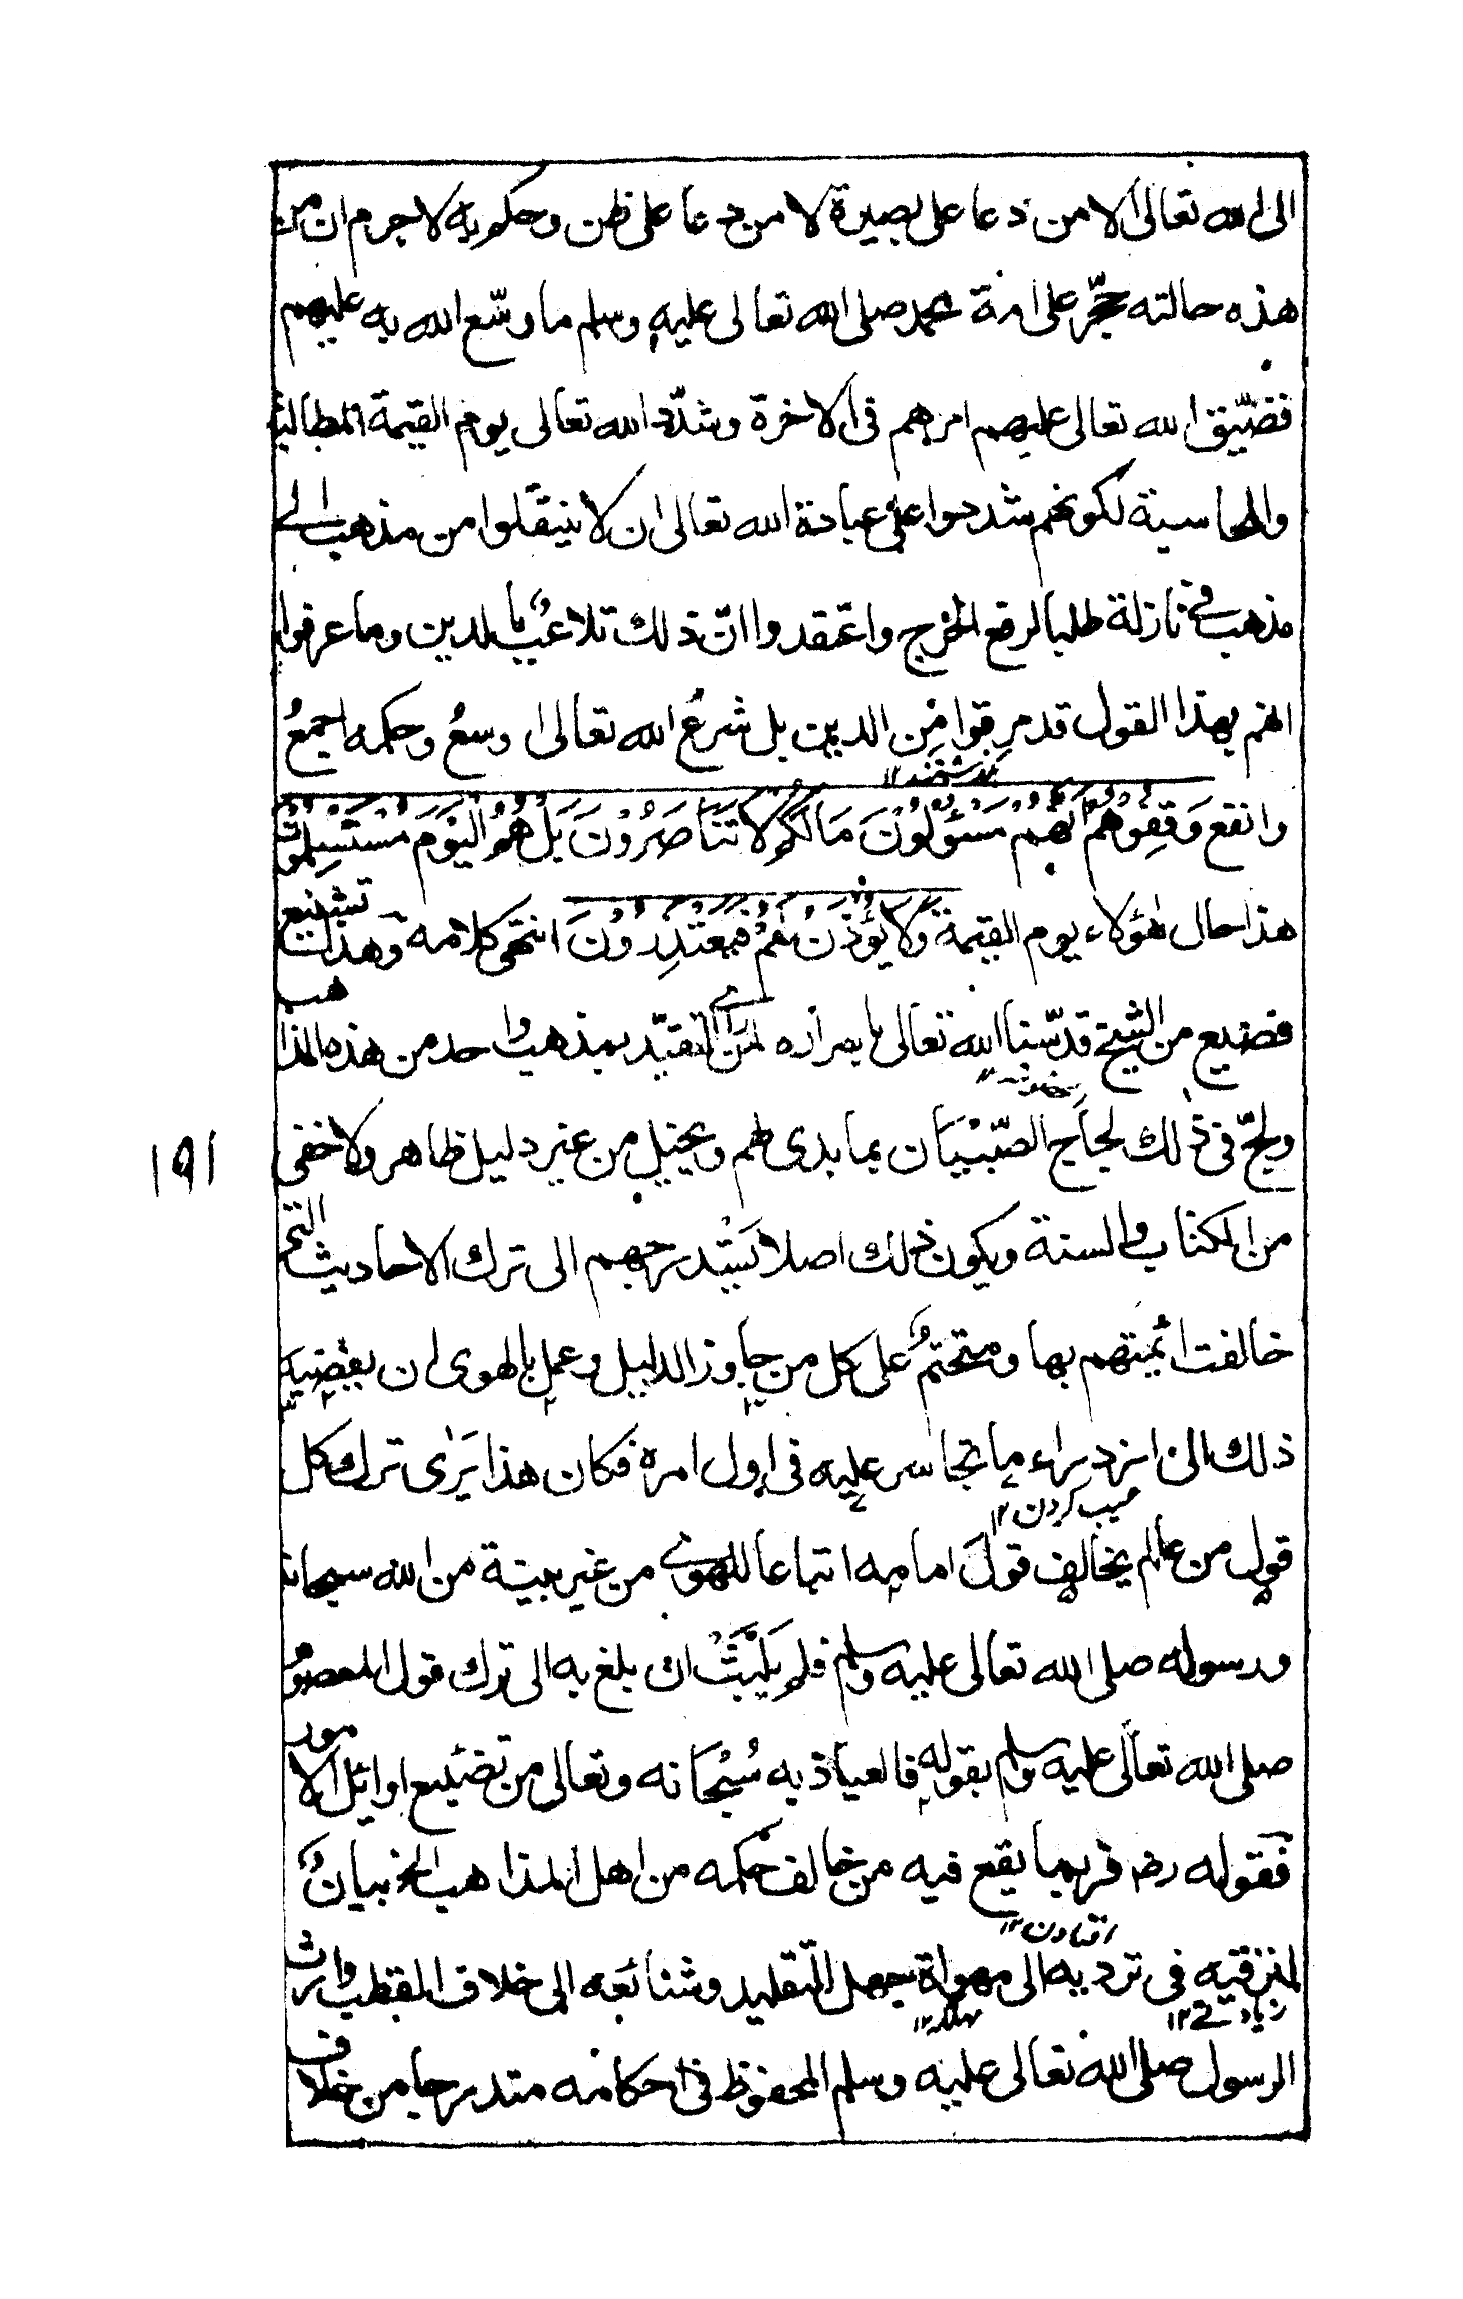 الى الله تعالى الا من دعا على بصيرة لا من دعا على ظن وحكم به لا جرم ان من
هذه حالته حجّر على امة محمد صلى الله تعالى عليه وسلم ما وسّع الله به عليهم
فضيّق الله تعالى عليهم امرهم فى الاخرة وشدّد الله تعالى يوم القيمة المطالبة
والمحاسبة لكونهم شددوا على عبادة الله تعالى ان لا ينتقلوا من مذهب الى
مذهب فى نازلة طلبا لرفع الحرج واعتقدوا انّ ذلك تلاعبٌ بالدين وما عرفوا
انهم بهذا القول قد مرقوا من الدين بل شرعُ الله تعالى اوسعُ وحكمه اجمعُ
بگذشتند ١٢
وانفع وَقِفُوهُمْ اِنَّهُمْ مَسْؤُلُونَ مَالَكُمْ لَا تَنَاصَرُوْنَ بَلْ هُمُ الْيَوْمَ مُسْتَسْلِمُوْنَ
هذا حال هٰؤلاء يوم القيمة وَلَا يُؤْذَنُ لَهُمْ فَيَعْتَذِرُوْنَ انتهى كلامه وهذا تشنيع
فضيع من الشيخ قدّسنا الله تعالى باسراره لمن راى التقيّد بمذهب واحد من هذه المذاهب
ولجّ فى ذلك لجاج الصّبْيَان بما بدى لهم ويخيل من غير دليل ظاهر ولا خفى
من الكتاب والسنة ويكون ذلك اصلا يَسْتَدرجهم الى ترك الاحاديث التى
خالفت ائمتهم بها ومتحتمٌ على كل من جاوز الدليل وعمل بالهوى ان يفضيه
ذلك الى ازدراء ما تجاسر عليه فى اول امره فكان هذا يَرٰى ترك كل
عيب كردن ١٢
قول من عالم يخالف قولَ امامه اتباعا للهوى من غير بينة من الله سبحانه
ورسوله صلى الله تعالى عليه وسلم فلم يَلْبَثْ ان بلغ به الى ترك قول المعصوم
صلى الله تعالى عليه وسلم بقوله فالعياذ به سُبْحَانه وتعالى من تضئيع اوائل الامور
فقوله رض فربما يقع فيه من خالف حكمه من اهل المذاهب الخ بيانٌ
افتادن ١٢
لمنزقيه فى ترديه الى مهواة جهل التقليد وشنائعه الى خلاف القطب وارث
مهلكه ١٢
الرسول صلى الله تعالى عليه وسلم المحفوظ فى احكامه متدرجا من خلاف
١٩١